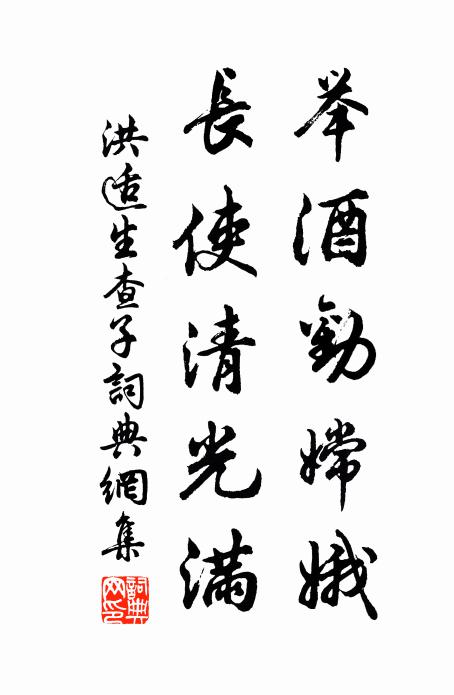 举酒勸嫦娥
長使清光滿
洪适生查子詞典網集
詞典網印